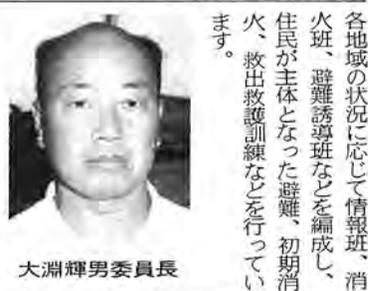 各地域の状況に応じて情報班、消
火班、避難誘導班などを編成し、
住民が主体となった避難、初期消
火、救出救護訓練などを行ってい
ます。
大淵輝男委員長